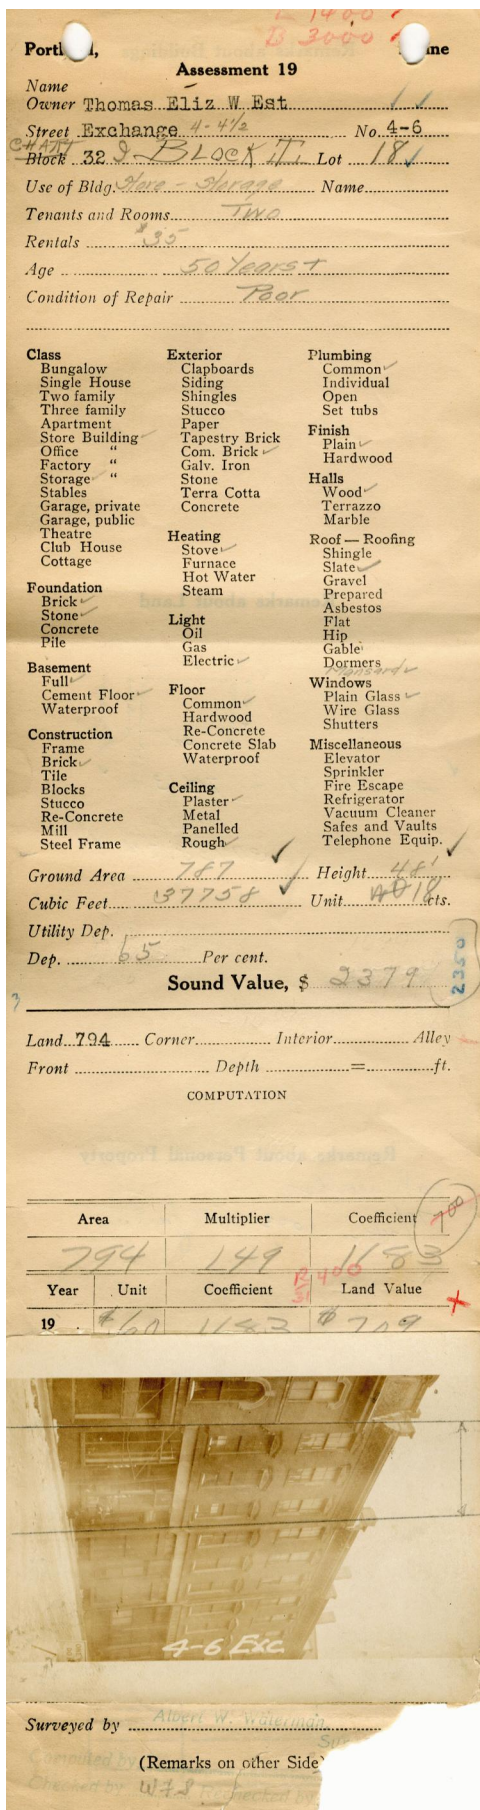 L 1400
B 3000
Assessment 19
Name
Owner Thomas Eliz W Est
Street Exchange 4-4½ No. 4-6
CHART
Block 32 I BLOCK II Lot 18
Use of Bldg. Store - Storage Name
Tenants and Rooms Two
Rentals $35
Age 50 Years +
Condition of Repair Poor
Class
Bungalow
Single House
Two family
Three family
Apartment
Store Building
Office "
Factory "
Storage "
Stables
Garage, private
Garage, public
Theatre
Club House
Cottage
Foundation
Brick
Stone
Concrete
Pile
Basement
Full
Cement Floor
Waterproof
Construction
Frame
Brick
Tile
Blocks
Stucco
Re-Concrete
Mill
Steel Frame
Exterior
Clapboards
Siding
Shingles
Stucco
Paper
Tapestry Brick
Com. Brick
Galv. Iron
Stone
Terra Cotta
Concrete
Heating
Stove
Furnace
Hot Water
Steam
Light
Oil
Gas
Electric
Floor
Common
Hardwood
Re-Concrete
Concrete Slab
Waterproof
Ceiling
Plaster
Metal
Panelled
Rough
Plumbing
Common
Individual
Open
Set tubs
Finish
Plain
Hardwood
Halls
Wood
Terrazzo
Marble
Roof — Roofing
Shingle
Slate
Gravel
Prepared
Asbestos
Flat
Hip
Gable
Dormers
Mansard
Windows
Plain Glass
Wire Glass
Shutters
Miscellaneous
Elevator
Sprinkler
Fire Escape
Refrigerator
Vacuum Cleaner
Safes and Vaults
Telephone Equip.
Ground Area 787 Height 48'
Cubic Feet 37758 Unit 18 cts.
Utility Dep.
Dep. 65 Per cent.
Sound Value, $ 2379
2350
Land 794 Corner Interior Alley
Front Depth = ft.
COMPUTATION
Area Multiplier Coefficient 700
794 149 1183
Year Unit Coefficient Land Value
400
19 $60 1183 $709
4-6 Exc.
Surveyed by Albert W. Waterman
Computed by
(Remarks on other Side)
Checked by WFS Rechecked by